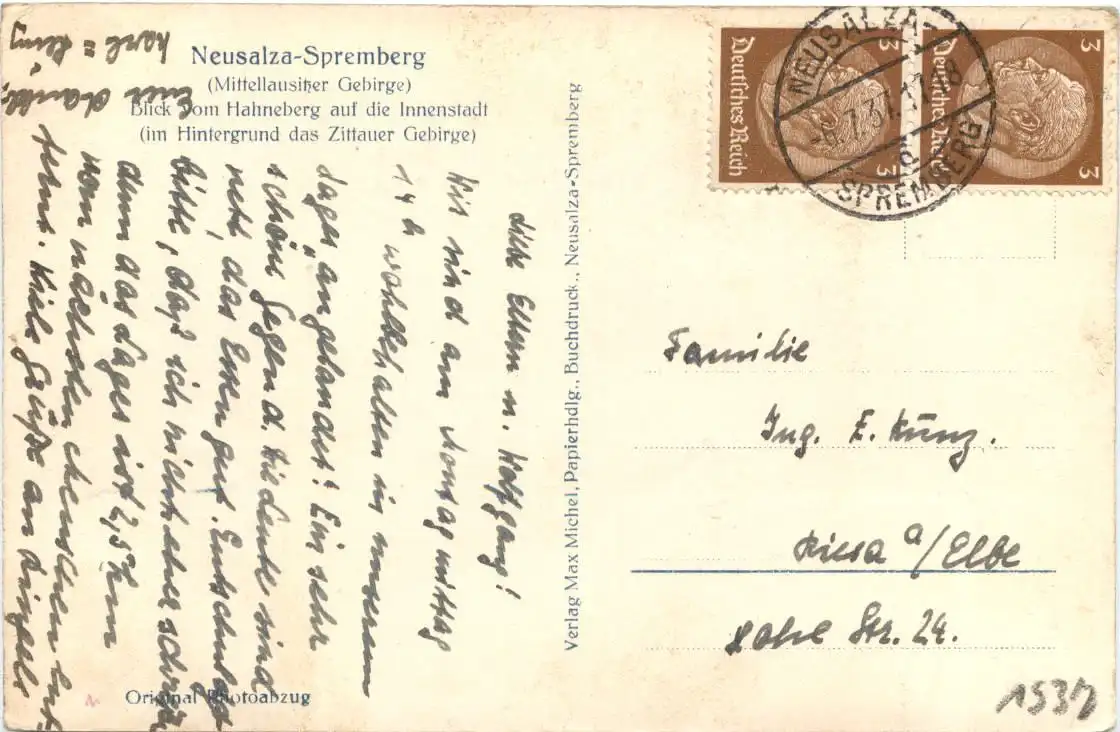 Neusalza-Spremberg
(Mittellausitzer Gebirge)
Blick vom Hahneberg auf die Innenstadt
(im Hintergrund das Zittauer Gebirge)
Liebe Eltern u. Wolfgang!
Wir sind am Sonntagmittag
14 h wohlbehalten in unserem
Lager „angelandet! Ein sehr
schöne Gegend. Die Leute sind
nett, das Essen gut. Entschuldigt
bitte, daß ich nicht eher schrieb
denn das Lager ist 2,5 km
vom nächsten Menschen ent-
fernt. Viele Grüße an
Euer
Karl-
Original Photoabzug
Verlag Max Michel, Papierhdlg., Buchdruck., Neusalza-Spremberg
Deutsches Reich
3
3
Deutsches Reich
3
3
NEUSALZA-
7.37.
SPREMBERG
Familie
Ing. E. Kunz.
Riesa a/Elbe
Hohe Str. 24.
1937